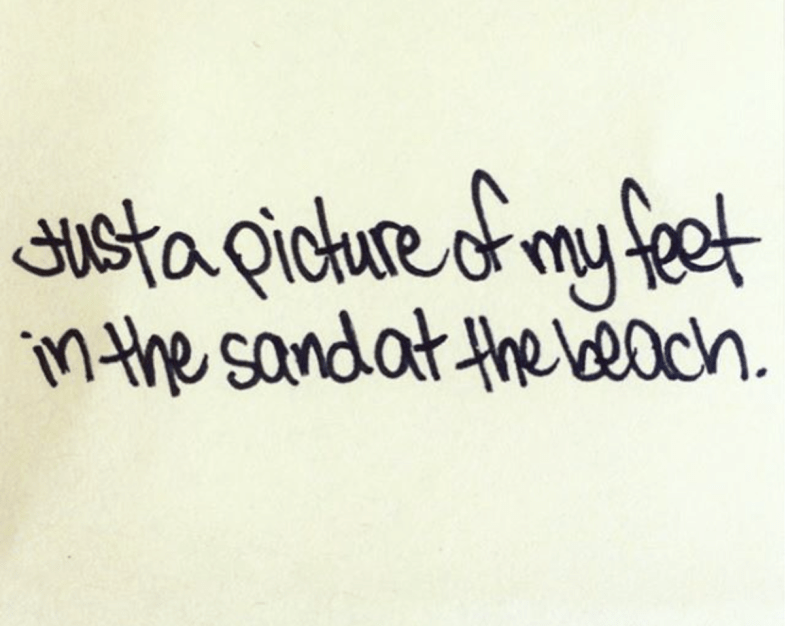 Just a picture of my feet
in the sand at the beach.